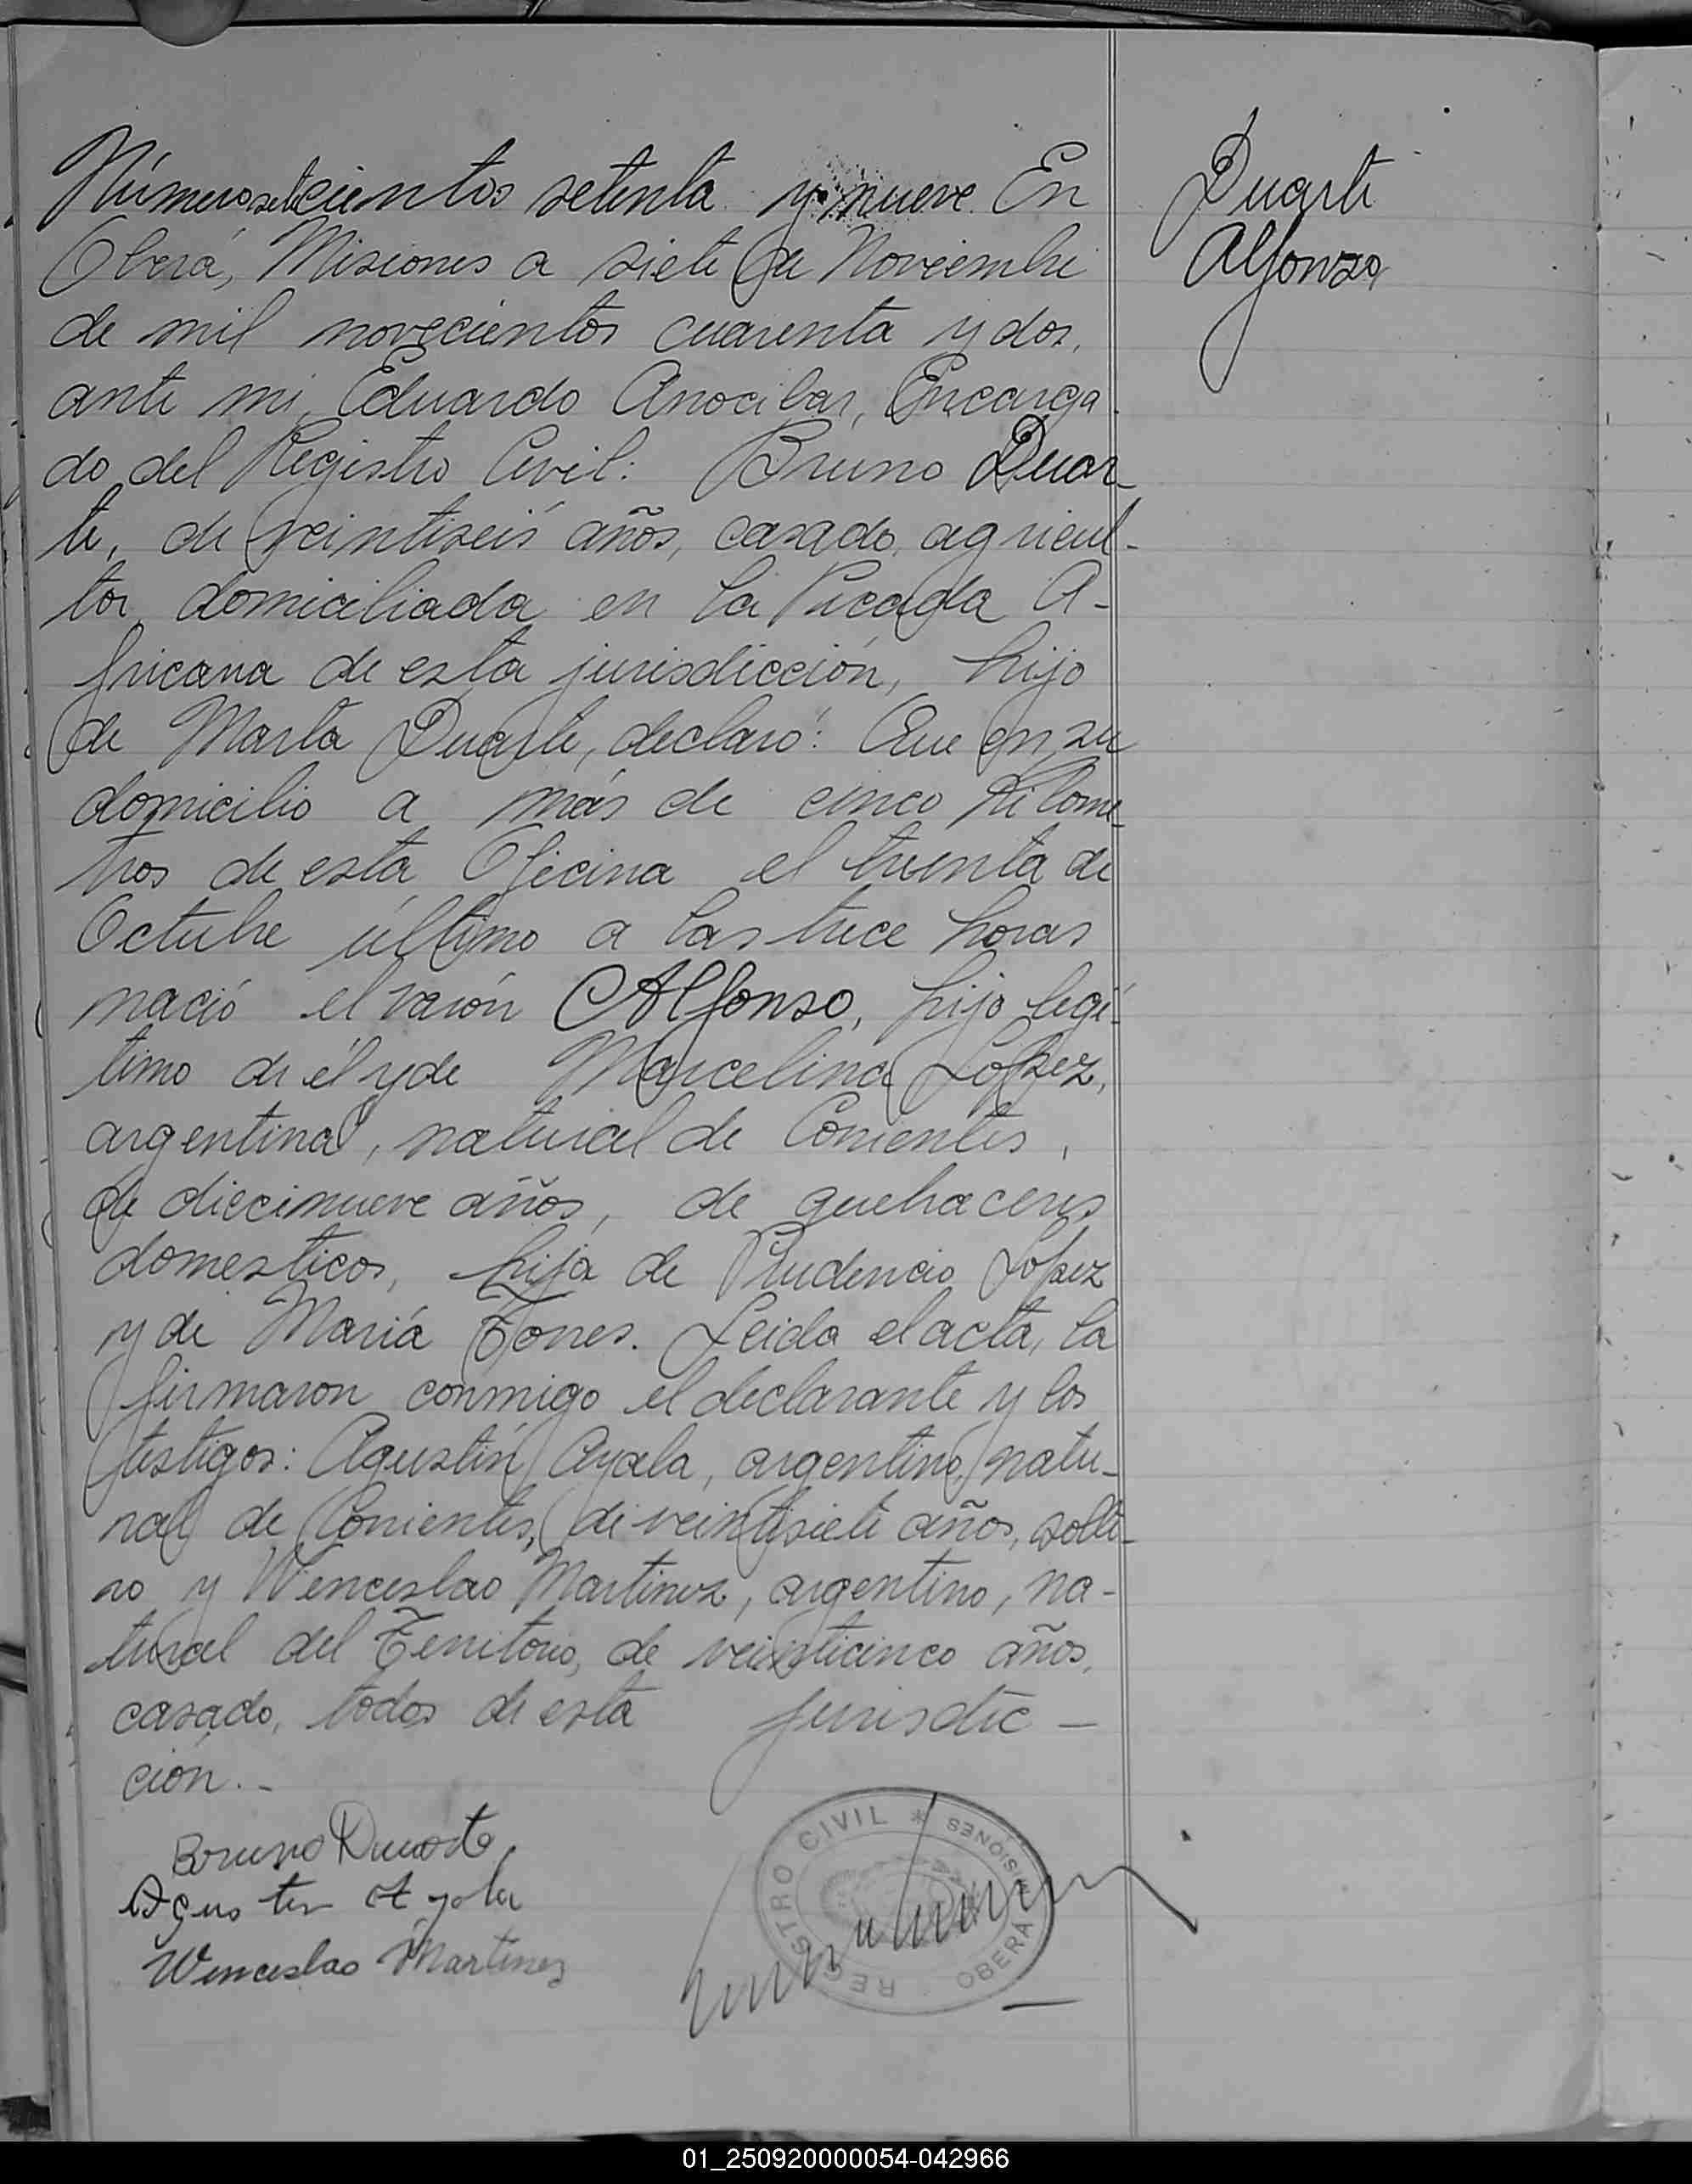 Número setecientos setenta y nueve. En
Oberá, Misiones a siete de Noviembre
de mil novecientos cuarenta y dos,
ante mi, Eduardo Anocibar, Encarga
do del Registro Civil: Bruno Duar-
te, de veintiseis años, casado, agricul-
tor, domiciliada en la Picada A-
fricana de esta jurisdicción, hijo
de Marta Duarte, declaró: Que en su
domicilio a más de cinco kilome-
tros de esta Oficina el treinta de
Octubre último a las trece horas
nació el varón Alfonso, hijo legi-
timo de él y de Marcelina López,
argentina, natural de Corrientes,
de diecinueve años, de quehaceres
domesticos, hija de Prudencio López
y de María Torres. Leida el acta, la
firmaron conmigo el declarante y los
testigos: Agustín Ayala, argentino, natu-
ral de Corrientes, de veintisiete años, solte-
ro y Wenceslao Martinez, argentino, na-
tural del Territorio, de veinticinco años,
casado, todos de esta jurisdic-
ción.-
Bruno Duarte
Agustin Ayala
Wenceslao Martinez
REGISTRO CIVIL * MISIONES
OBERA
Duarte
Alfonzo
01_250920000054-042966